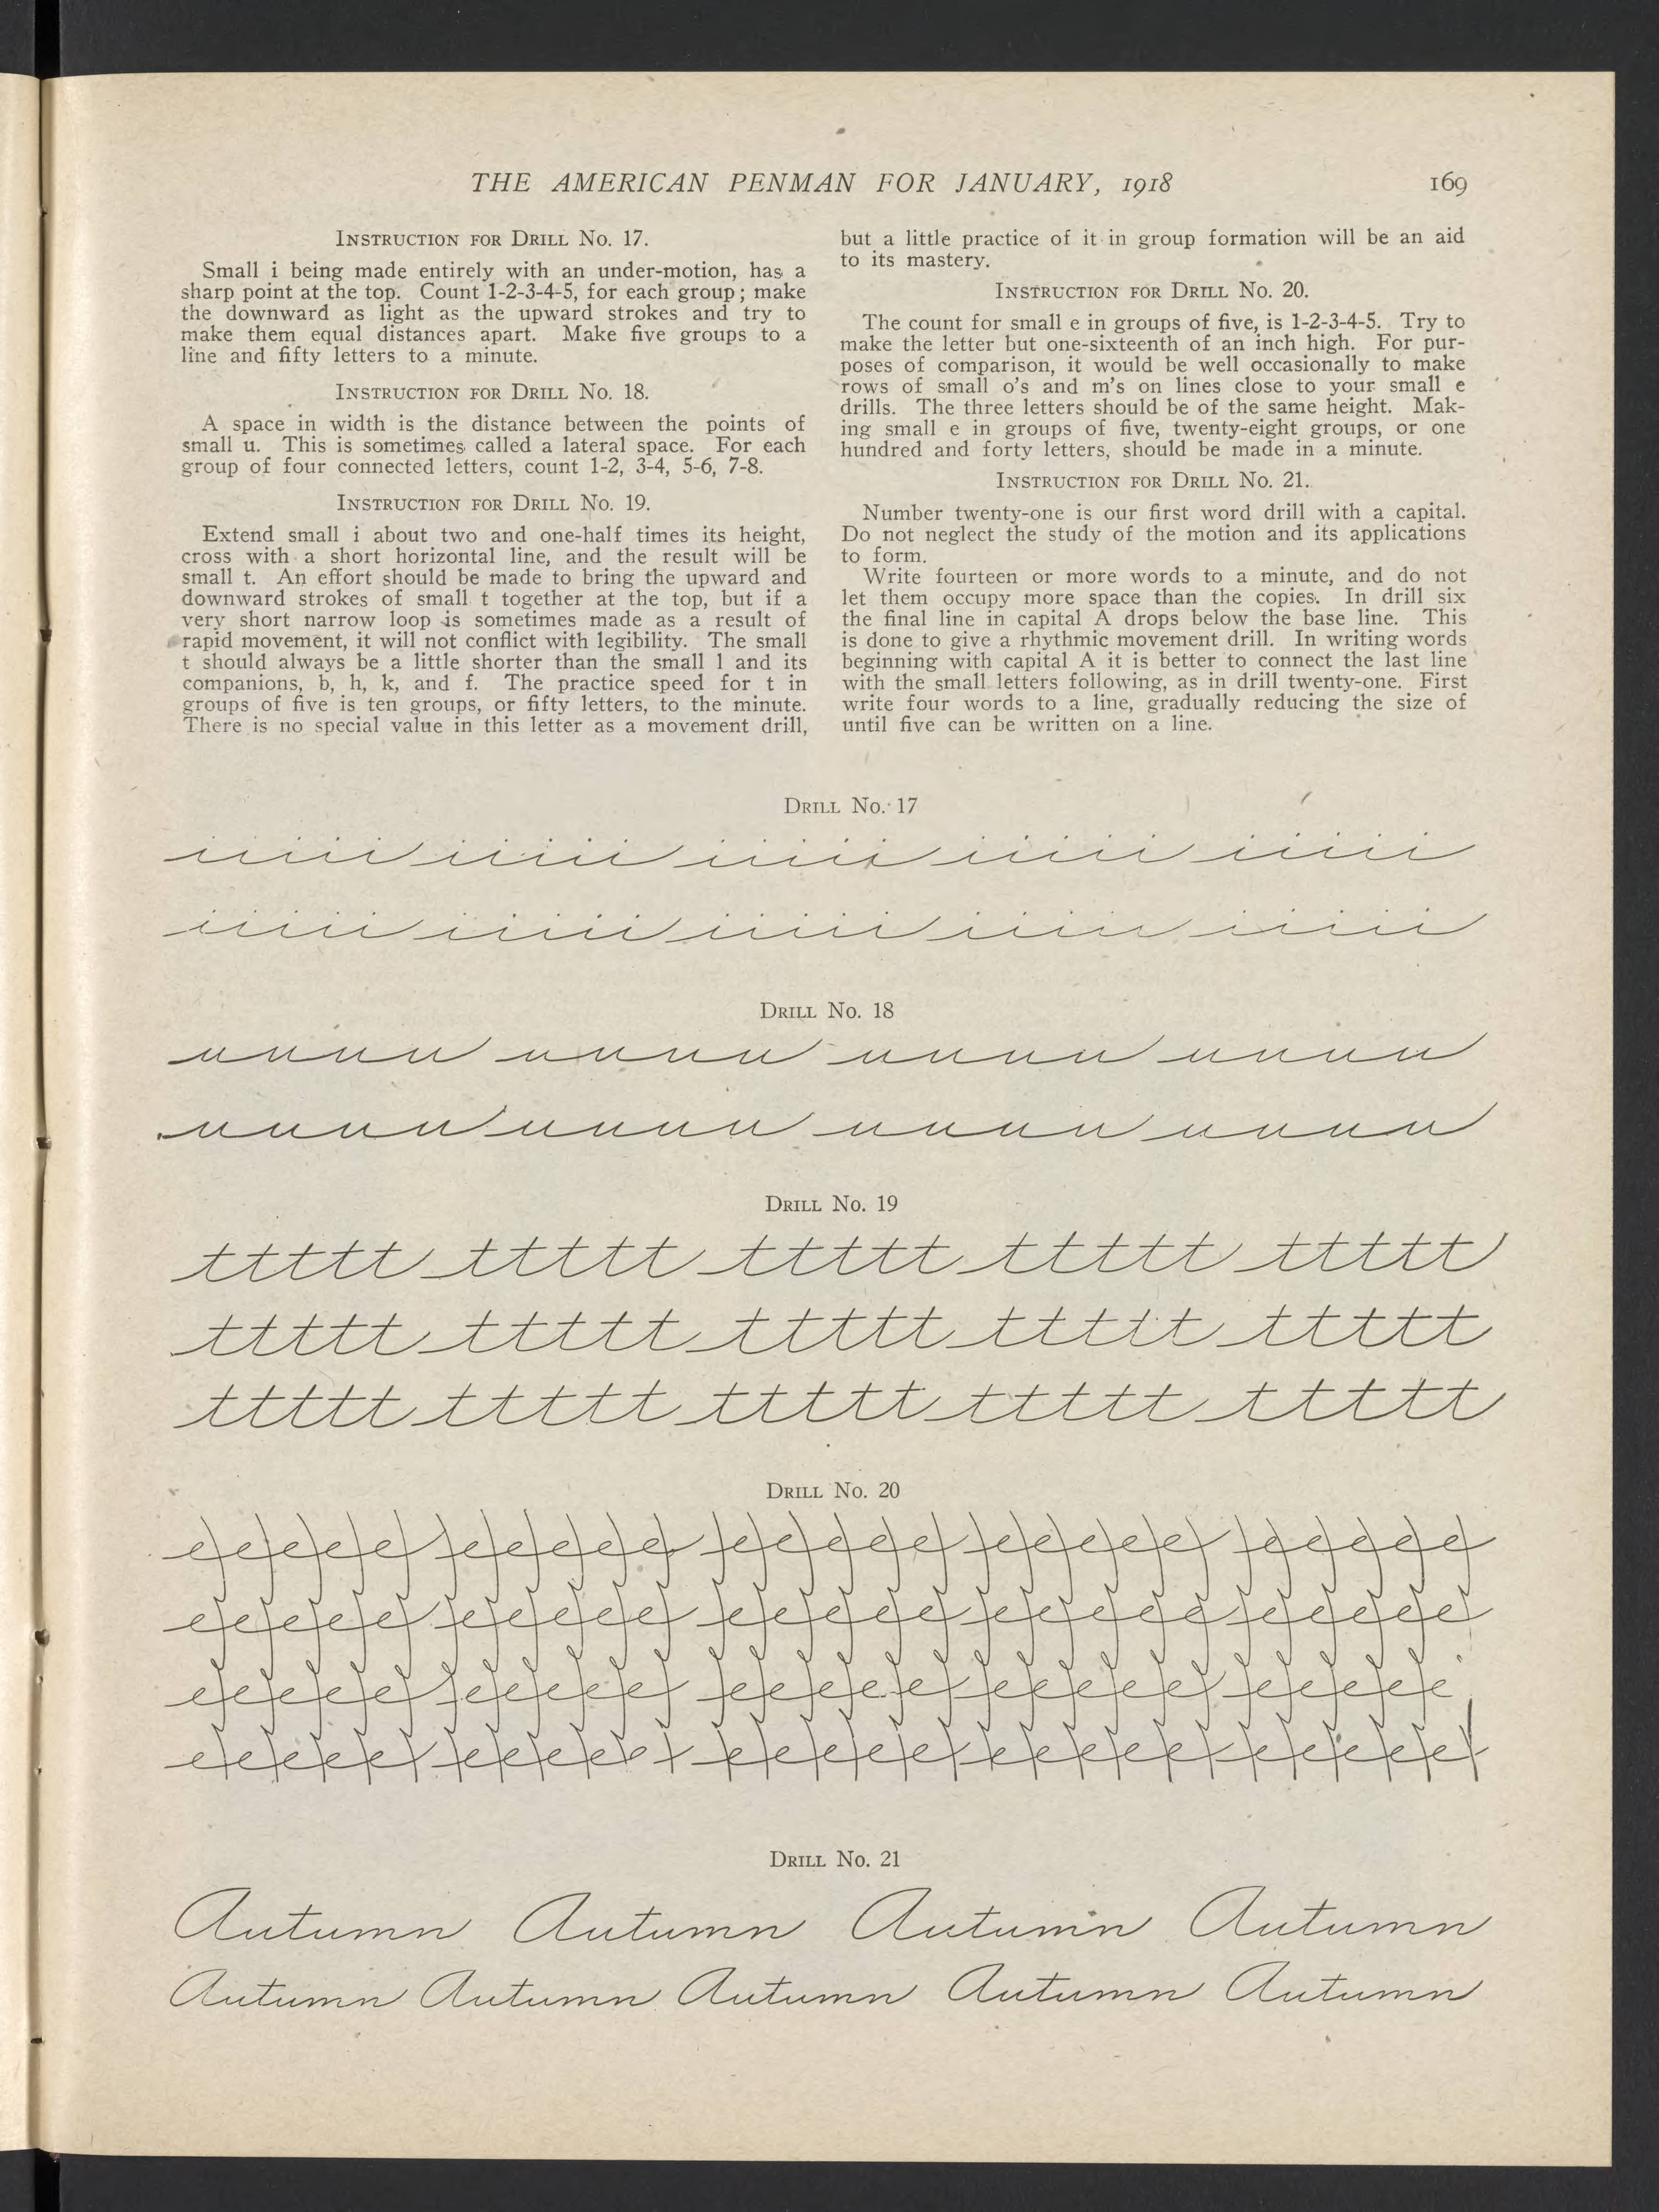 THE AMERICAN PENMAN FOR JANUARY, 1918 169
INSTRUCTION FOR DRILL No. 17.
Small i being made entirely with an under-motion, has a
sharp point at the top. Count 1-2-3-4-5, for each group; make
the downward as light as the upward strokes and try to
make them equal distances apart. Make five groups to a
line and fifty letters to a minute.
INSTRUCTION FOR DRILL No. 18.
A space in width is the distance between the points of
small u. This is sometimes called a lateral space. For each
group of four connected letters, count 1-2, 3-4, 5-6, 7-8.
INSTRUCTION FOR DRILL No. 19.
Extend small i about two and one-half times its height,
cross with a short horizontal line, and the result will be
small t. An effort should be made to bring the upward and
downward strokes of small t together at the top, but if a
very short narrow loop is sometimes made as a result of
rapid movement, it will not conflict with legibility. The small
t should always be a little shorter than the small l and its
companions, b, h, k, and f. The practice speed for t in
groups of five is ten groups, or fifty letters, to the minute.
There is no special value in this letter as a movement drill,
but a little practice of it in group formation will be an aid
to its mastery.
INSTRUCTION FOR DRILL No. 20.
The count for small e in groups of five, is 1-2-3-4-5. Try to
make the letter but one-sixteenth of an inch high. For pur-
poses of comparison, it would be well occasionally to make
rows of small o's and m's on lines close to your small e
drills. The three letters should be of the same height. Mak-
ing small e in groups of five, twenty-eight groups, or one
hundred and forty letters, should be made in a minute.
INSTRUCTION FOR DRILL No. 21.
Number twenty-one is our first word drill with a capital.
Do not neglect the study of the motion and its applications
to form.
Write fourteen or more words to a minute, and do not
let them occupy more space than the copies. In drill six
the final line in capital A drops below the base line. This
is done to give a rhythmic movement drill. In writing words
beginning with capital A it is better to connect the last line
with the small letters following, as in drill twenty-one. First
write four words to a line, gradually reducing the size of
until five can be written on a line.
DRILL No. 17
iiiii iiiii iiiii iiiii iiiii
iiiii iiiii iiiii iiiii iiiii
DRILL No. 18
uuuu uuuu uuuu uuuu
uuuu uuuu uuuu uuuu
DRILL No. 19
ttttt ttttt ttttt ttttt ttttt
ttttt ttttt ttttt ttttt ttttt
ttttt ttttt ttttt ttttt ttttt
DRILL No. 20
eeeee eeeee eeeee eeeee eeeee
eeeee eeeee eeeee eeeee eeeee
eeeee eeeee eeeee eeeee eeeee
eeeee eeeee eeeee eeeee eeeee
DRILL No. 21
Autumn Autumn Autumn Autumn
Autumn Autumn Autumn Autumn Autumn